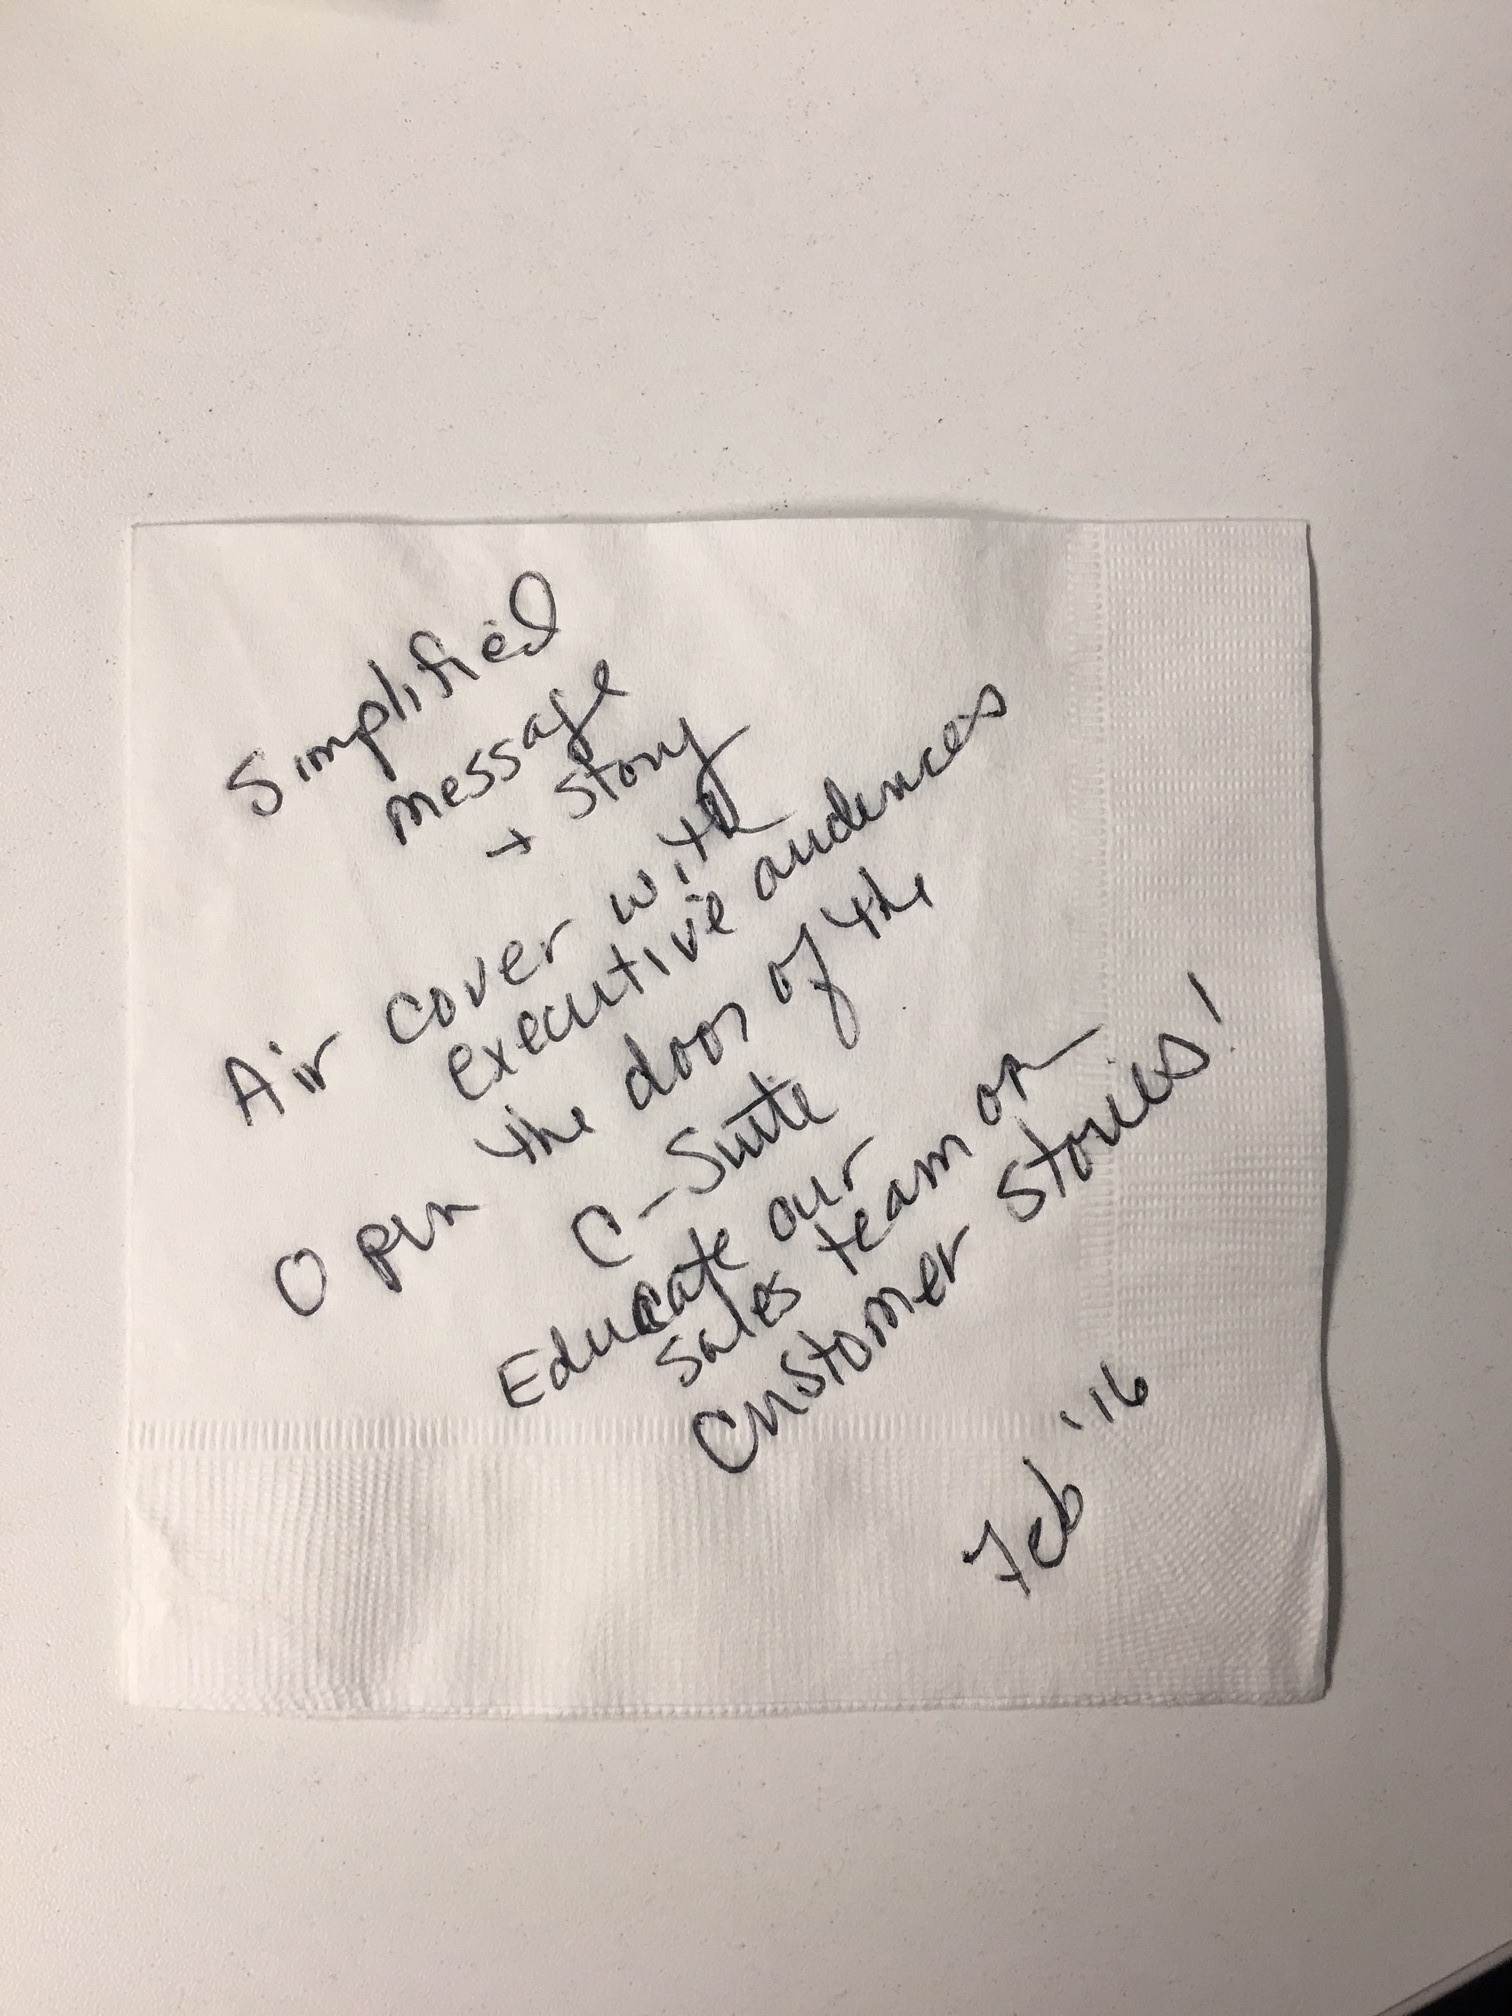 Simplified
message
+ story
Air cover with
executive audences
Open the door of the
C-Suite
Educate our
sales team on
Customer stories!
Feb '16